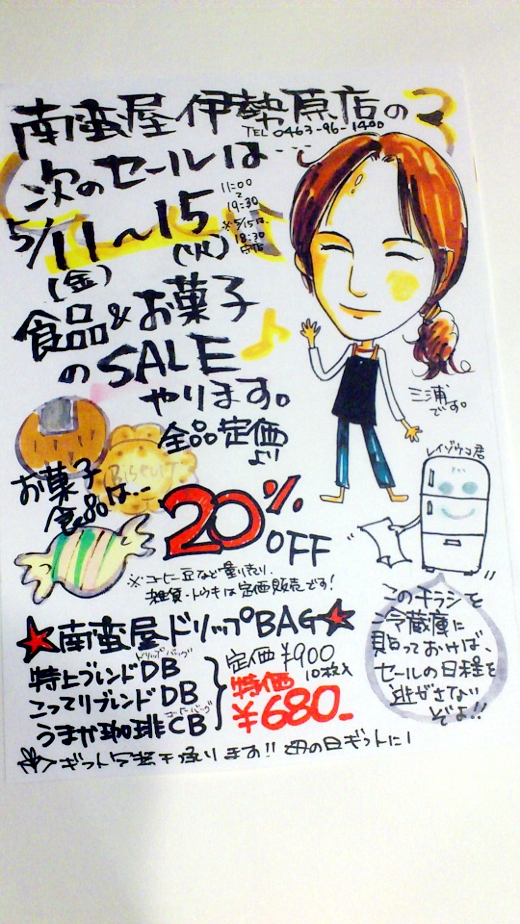 南蛮屋 伊勢原店の
TEL 0463-96-1400
次のセールは…
5/11～15
(金) (火)
11:00
～
19:30
※5/15は
18:30
閉店
食品&お菓子
のSALE
やります。
全品定価
より
BISCUIT
お菓子
食品は…
20% OFF
※コーヒー豆など量り売り、
雑貨・トウキは定価販売です!
三浦
です。
レイゾウコ君
このチラシを
冷蔵庫に
貼っておけば、
セールの日程を
逃がさない
ぞよ!!
★南蛮屋ドリップBAG★
ドリップバッグ
特上ブレンドDB
こってりブレンドDB
うまか珈琲CB
定価¥900
10枚入
特価
¥680-
ギフト包装も承ります!! 母の日ギフトに!